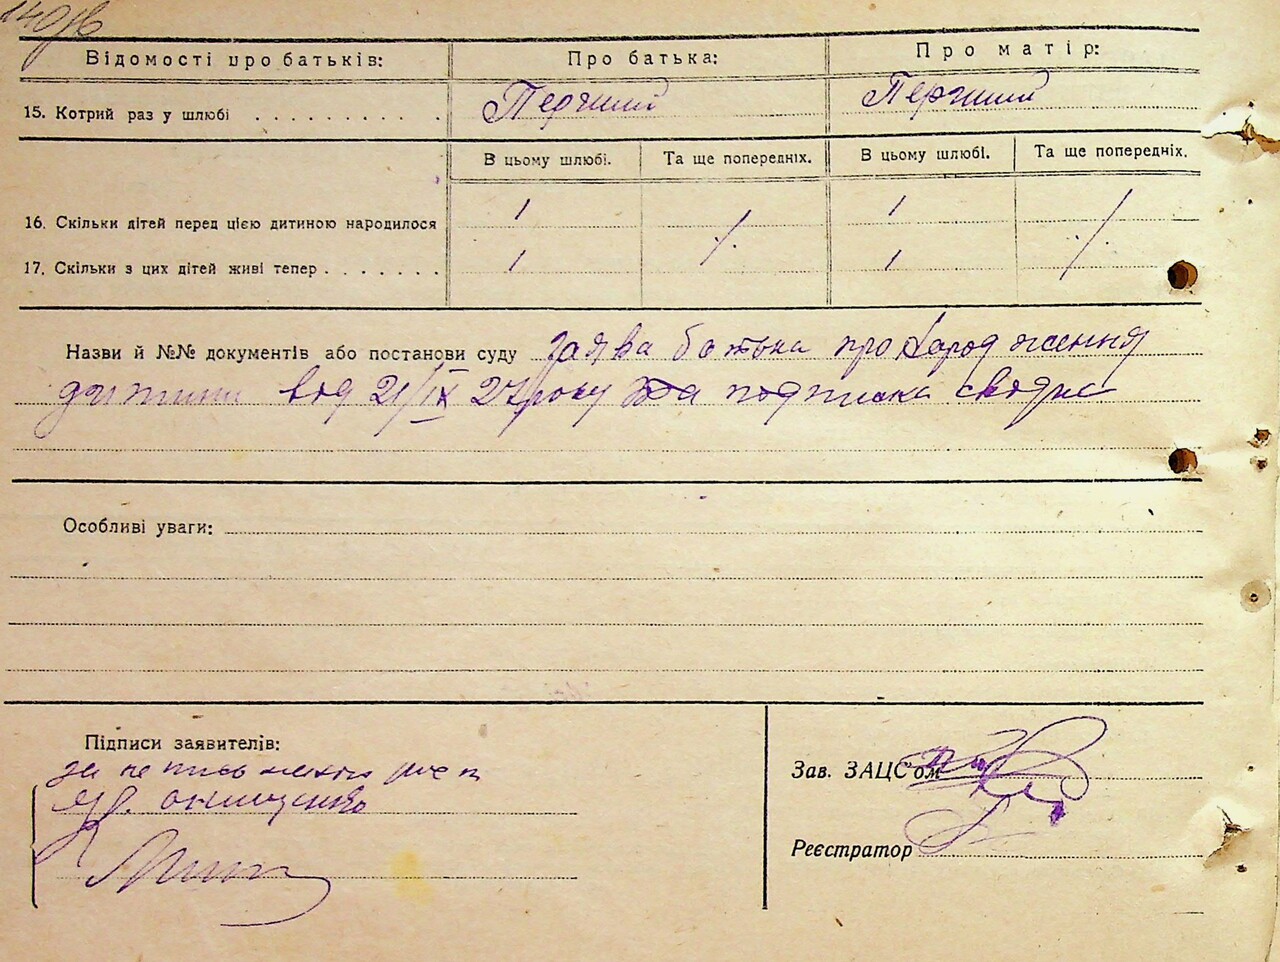 Відомості про батьків: Про батька: Про матір:
15. Котрий раз у шлюбі Перший Перший
В цьому шлюбі. Та ще попередніх. В цьому шлюбі. Та ще попередніх.
16. Скільки дітей перед цією дитиною народилося 1 ./. 1 ./.
17. Скільки з цих дітей живі тепер 1 1
Назви й №№ документів або постанови суду заява батька про народження
дитини від 21/IX 27 року та подписка
Особливі уваги:
Підписи заявителів:
за не
Онищенко
Зав. ЗАЦС'ом
Реєстратор